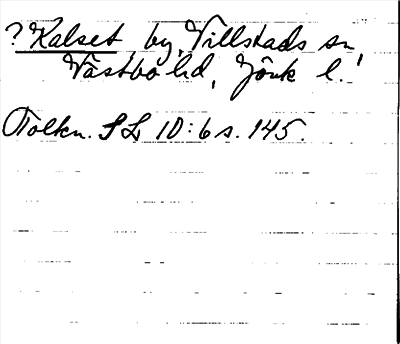 ? Kalset by, Villstads sn,
Västbo hd, Jönk l.
Tolkn. SL 10:6 s. 145.